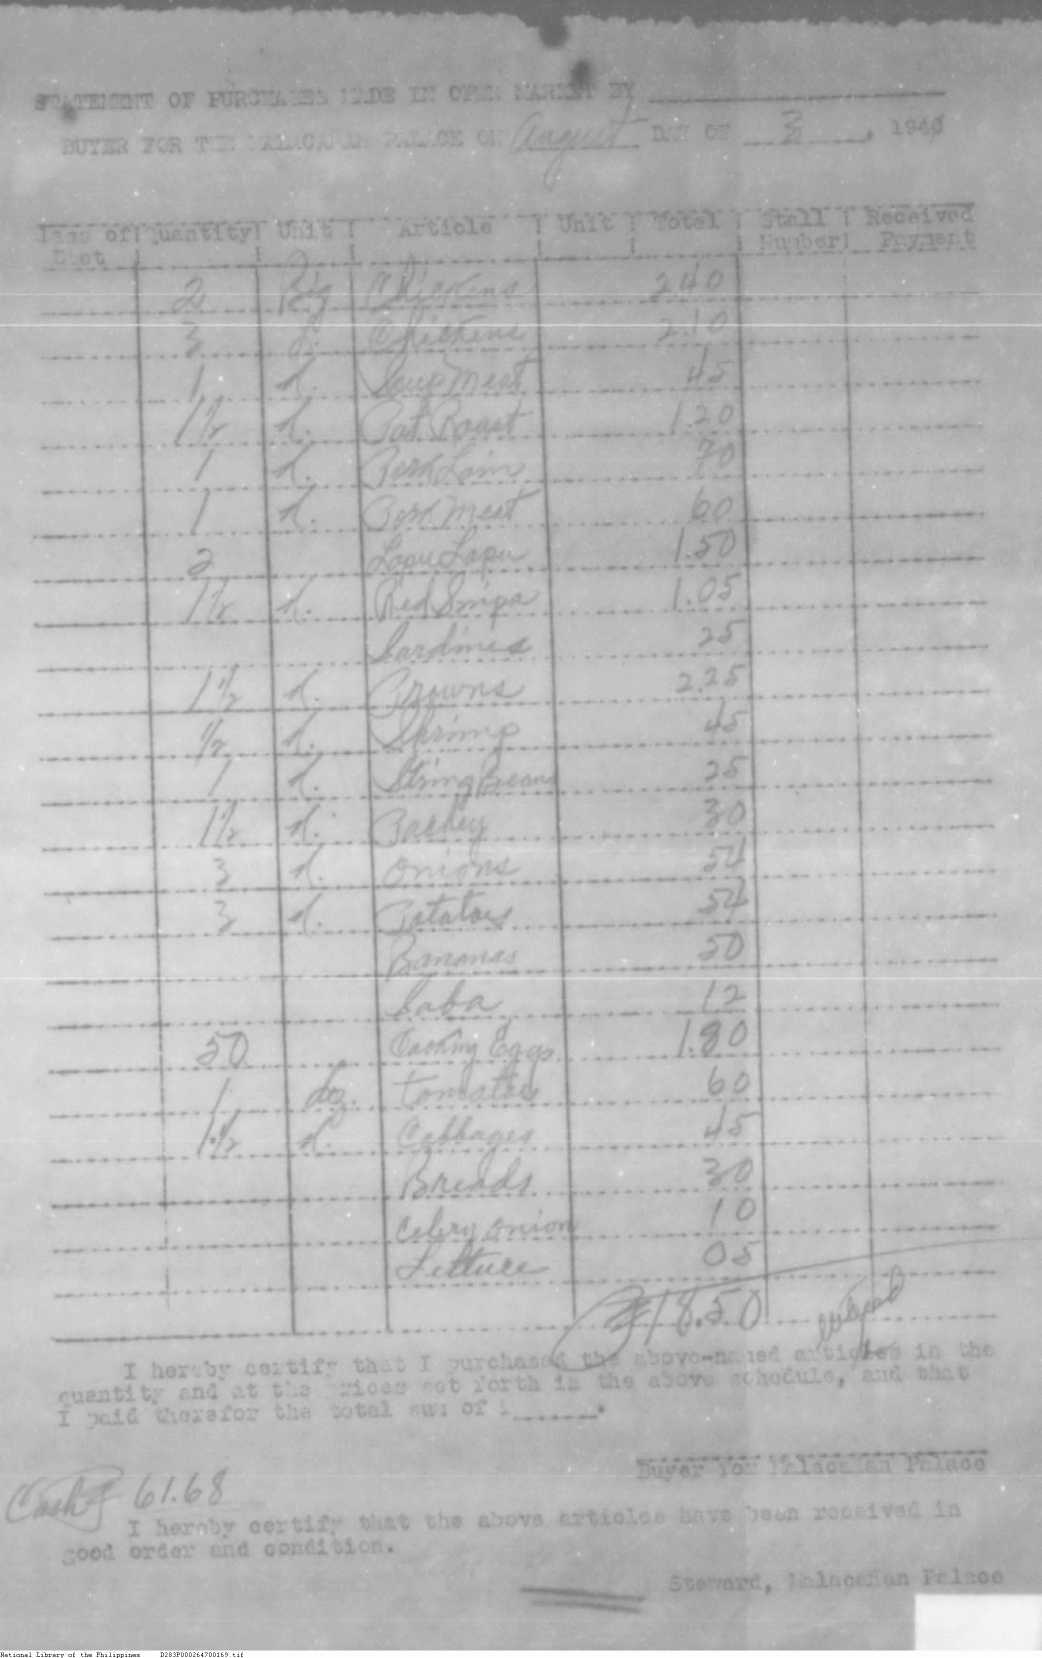 STATEMENT OF PURCHASES MADE IN OPEN MARKET BY
BUYER FOR THE MALACAÑAN PALACE ON August DAY OF 3, 1940
Quantity Unit Article Unit Total Stall Number Received Payment
2 Big Chickens 2.40
3 Chickens 2.10
1 k. Soup Meat 45
1½ k. Pot Roast 1.20
1 k. Pork Loin 70
1 k. Pork Meat 60
2 Lapu Lapu 1.50
1½ k. Red Snipa 1.05
Sardines 25
1½ k. Prowns 2.25
½ k. Shrimp 45
1 k. String Beans 25
1½ k. 30
3 k. Onions 54
3 k. Potatoes 54
Bananas 50
Saba 12
50 Cooking Eggs 1.80
1 tomatoes 60
1½ k. Cabbages 45
Breads 30
Celery onion 10
Lettuce 05
₱18.50
I hereby certify that I purchased the above-named articles in the
quantity and at the prices set forth in the above schedule, and that
I paid therefor the total sum of
Buyer Malacañan Palace
Cash ₱ 61.68
I hereby certify that the above articles have been received in
good order and condition.
Steward, Malacañan Palace
National Library of the Philippines D283P000264700169.tif